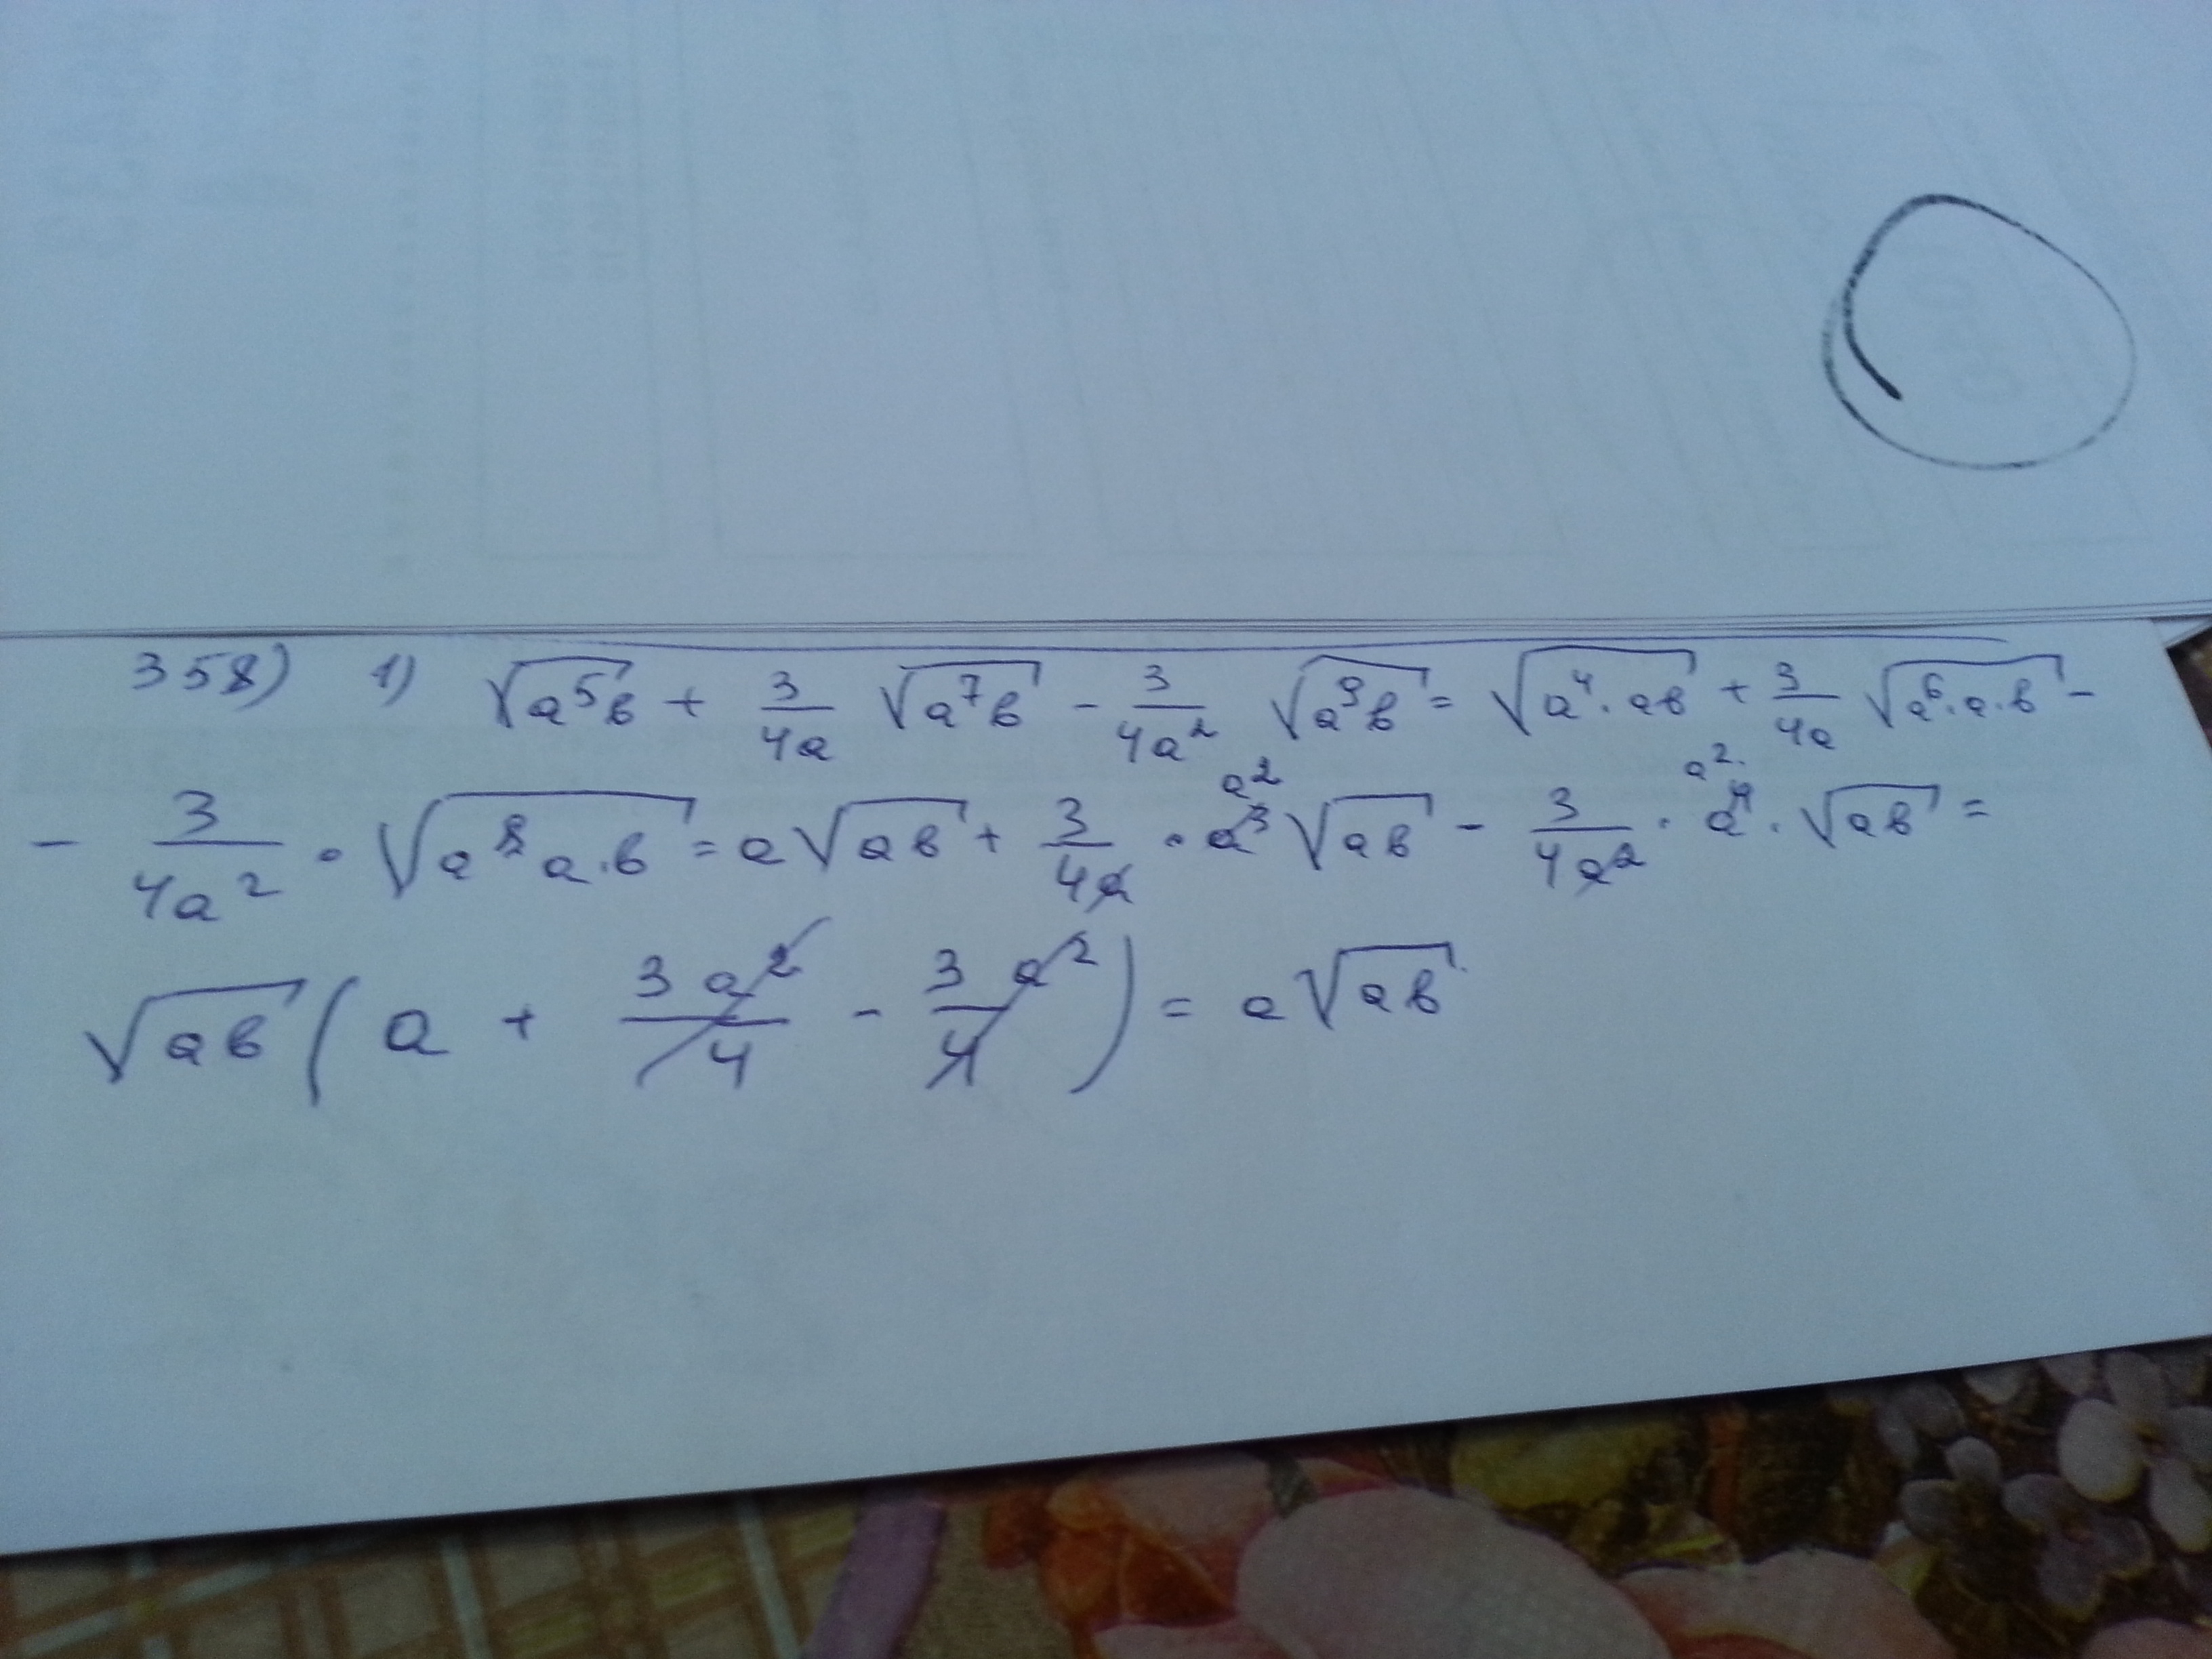 358) 1) √(a⁵b) + 3/(4a) √(a⁷b) - 3/(4a²) √(a⁹b) = √(a⁴·ab) + 3/(4a) √(a⁶·a·b) -
- 3/(4a²) · √(a⁸a·b) = a√(ab) + 3/(4a) · a³ a² √(ab) - 3/(4a²) · a⁴ a² · √(ab) =
√(ab) (a + 3a²/4 - 3/4 a²) = a√(ab)